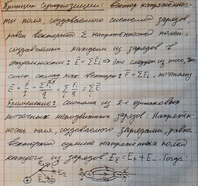 Принцип суперпозиции: вектор напряженнос-
ти поля, создаваемого системой зарядов,
равен векторной Σ напряженностей полей,
создаваемых каждым из зарядов в
отдельности: E = ΣEi это следует из того, что
сила складыв как вектор: F = ΣFi, поэтому
E = F/q = ΣFi/q = ΣEi
Применение: система из 2-х одинаковых
точечных неподвижных зарядов. Напряжён-
ность поля, создаваемого зарядами, равна
векторной сумме напряженностей полей
каждого из зарядов EΣ = E+ + E-. Тогда: